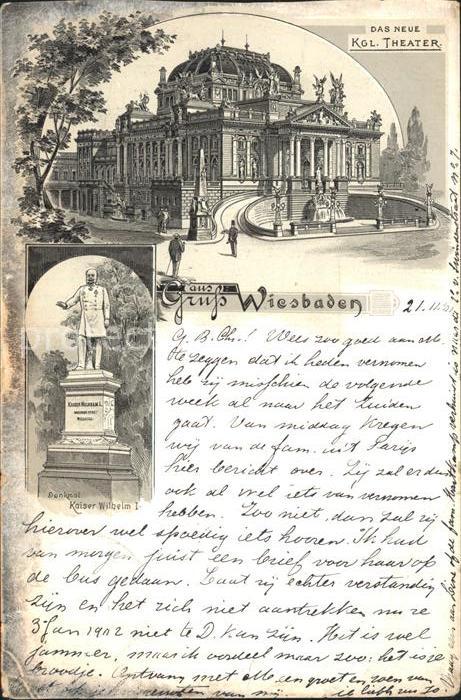 DAS NEUE
KGL. THEATER.
Gruß aus Wiesbaden
21.11.
KAISER WILHELM I.
Denkmal
Kaiser Wilhelm I.
G. B. Chr.! Wees zoo goed aan
te zeggen dat ik heden vernomen
heb zij misschien de volgende
week al naar het Zuiden
gaat. Van middag kregen
wij van de fam. uit Parijs
hier bericht over. Zij zal er dus
ook al wel iets van vernomen
hebben. Zoo niet, dan zal zij
hierover wel spoedig iets hooren. Ik had
van morgen juist een brief voor haar op
de bus gedaan. Laat zij echter verstandig
zijn en het zich niet aantrekken nu ze
3 Jan 1902 niet te D. kan zijn. Het is wel
jammer, maar ik oordeel maar zoo: het is je
broodje. Ontvang met een groet en zoen van